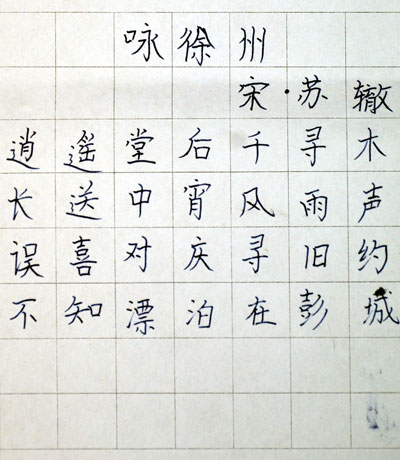 咏徐州
宋·苏辙
逍遥堂后千寻木
长送中宵风雨声
误喜对庆寻旧约
不知漂泊在彭城